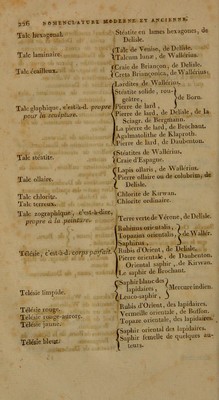 226 NOMENCLATURE MODERNE ET ANCIENNE.
Talc hexagonal. Stéatite en lames hexagones, de Delisle.
Talc laminaire. Talc de Venise, de Delisle.
Talcum lunæ, de Wallérius.
Talc écailleux. Craie de Briançon, de Delisle.
Creta Briançonica, de Wallérius.
Lardites de Wallérius.
Stéatite solide, rougeâtre, de Born.
Talc glyphique, c'est-à-d. propre pour la sculpture. Pierre de lard,
Pierre de lard, de Delisle, de la Sciagr. de Bergmann.
La pierre de lard, de Brochant.
Agalmatolithe de Klaproth.
Pierre de lard, de Daubenton.
Talc stéatite. Stéatites de Wallérius.
Craie d'Espagne.
Talc ollaire. Lapis ollaris, de Wallérius.
Pierre ollaire ou de colubrine, de Delisle.
Talc chlorite. Chlorite de Kirwan.
Talc terreux. Chlorite ordinaire.
Talc zographique, c'est-à-dire, propre à la peinture. Terre verte de Vérone, de Delisle.
Rubinus orientalis,
Topazius orientalis, de Waller.
Saphirus,
Télésie, c'est-à-d. corps parfait. Rubis d'Orient, de Delisle.
Pierre orientale, de Daubenton.
Oriental saphir, de Kirwan.
Le saphir de Brochant.
Télésie limpide. Saphir blanc des lapidaires, Mercure indien.
Leuco-saphir,
Télésie rouge. Rubis d'Orient, des lapidaires.
Télésie rouge-aurore. Vermeille orientale, de Buffon.
Télésie jaune. Topaze orientale, des lapidaires.
Télésie bleue. Saphir oriental des lapidaires.
Saphir femelle de quelques auteurs.